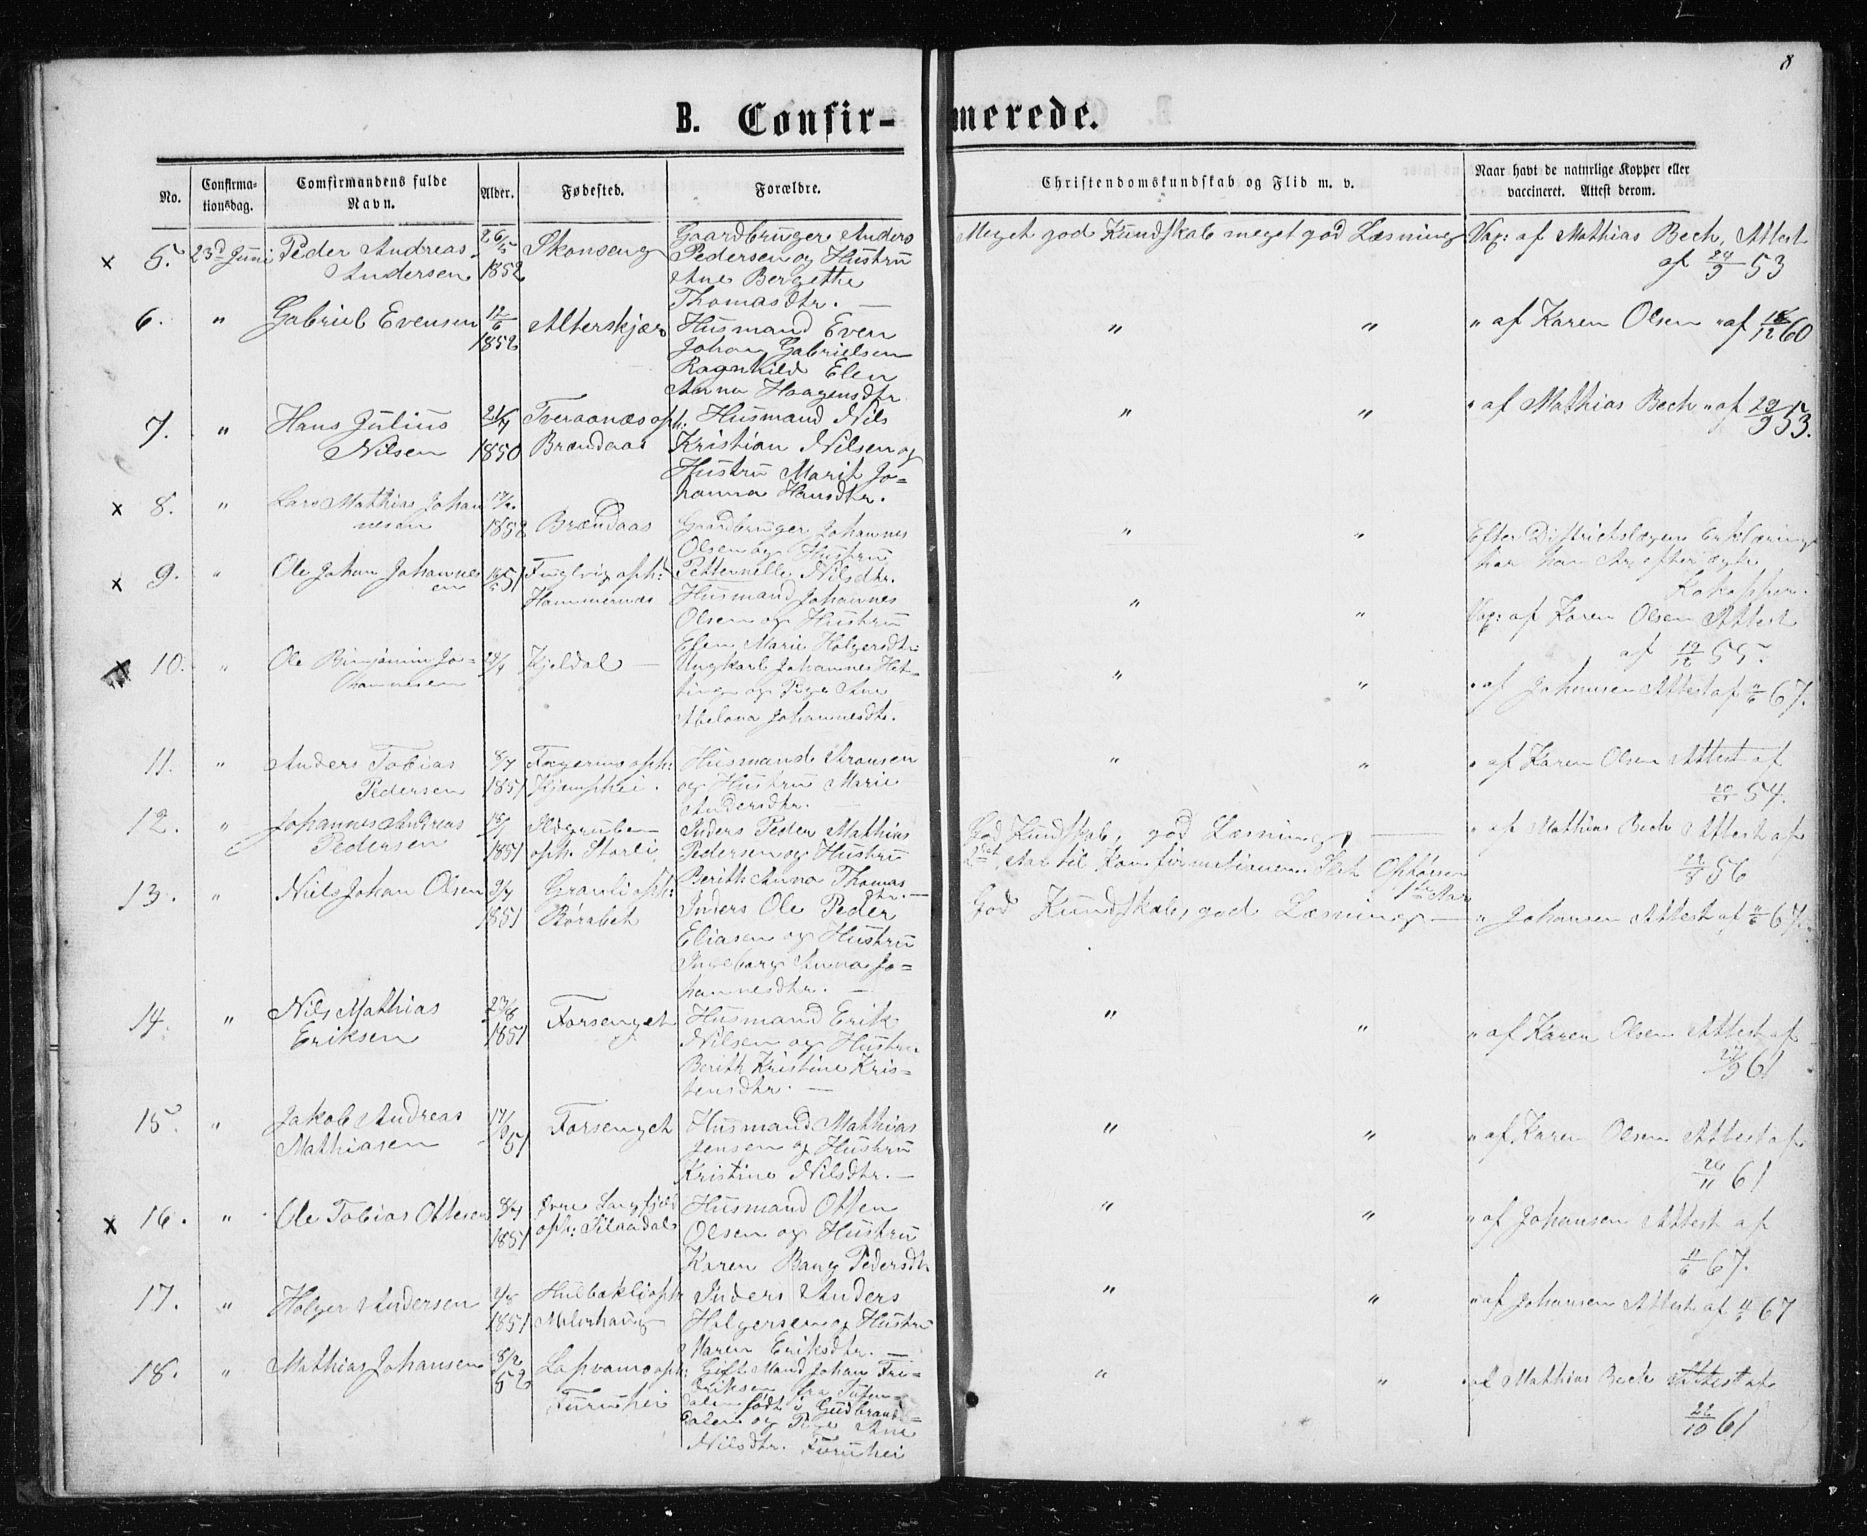 8
B. Confirmerede.
No.
Confirmationsdag.
Comfirmandens fulde Navn.
Alder.
Fødested.
Forældre.
Christendomskundskab og Flid m. v.
Naar havt de naturlige Kopper eller vaccineret. Attest derom.
x 5. 23d Juni Peder Andreas Andersen 26/5 1852 Skonseng
Gaardbruger Anders
Pedersen og Hustru
Ane Bergethe
Thomasdtr. —
Meget god Kundskab meget god Læsning
Vax: af Mathias Bech, Attest
af 24/9 53
6. " Gabriel Evensen 12/6 1852 Alterskjær
Husmand Even
Johan Gabrielsen
Ragnhild Elen
Anna Haagensdtr
" "
" af Karen Olsen " af 18/12 60
7. " Hans Julius Nilsen 1850 Tveraanæs oph: Brændaas
Husmand Nils
Kristian Nilsen og
Hustru Marit Jo=
hanna Hansdtr.
" "
" af Mathias Bech " af 29/9 53.
x 8. " Lars Mathias Johannesen 1852 Brændaas
Gaardbruger Johannes
Olsen og Hustru
Petternelle Nilsdtr.
" "
Efter Districtslægens Erklæring
har han
Kokopper.
x 9. " Ole Johan Johannesen 51 oph: Hammernæs
Husmand Johannes
Olsen og Hustru
Elen Marie Holgersdtr.
" "
Vax: af Karen Olsen Attest
af 19/12 55.
x 10. " Ole Binjamin Johannesen Kjeldal —
Ungkarl Johannes
og Pige Ane
Abelona Johannesdtr.
" "
" af Johansen Attest af 11/6 67.
11. " Anders Tobias Pedersen 8/7 1851 oph: Kjemphei.
Husmand
og Hustru Marie
Andersdtr. —
" "
" af Karen Olsen Attest af
54.
12. " Johannes Andreas Pedersen 1851 Ildgruben oph: Storli
Inders Peder Mathias
Pedersen og Hustru
Berith Anna Thomas
dtr. —
God Kundskab, god Læsning, —
" af Mathias Bech Attest af
56
13. " Niels Johan Olsen 1851 Granli oph: Børabet
Inders Ole Peder
Eliasen og Hustru
Ingeborg Anna Jo=
hannesdtr. —
God Kundskab, god Læsning —
" Johansen Attest af 11/6 67.
14. " Nils Mathias Eriksen 23/8 1851 Forsenget
Husmand Erik
Nilsen og Hustru
Berith Kristine Kris=
tensdtr. —
" "
" af Karen Olsen Attest af
61
15. " Jakob Andreas Mathiasen 51 Forsenget
Husmand Mathias
Jensen og Hustru
Kristine Nilsdtr. —
" "
" af Karen Olsen Attest af
26/11 61
x 16. " Ole Tobias Ottesen 1851 Øvre Langfjeld oph:
Husmand Otten
Olsen og Hustru
Karen Bang Pedersdtr
" "
" af Johansen Attest af
11/6 67.
17. " Holger Andersen 2/8 1851 oph:
Inders Anders
Holgersen og Hustru
Maren Eriksdtr. —
" "
" af Johansen Attest af 11/6 67
18. " Mathias Johansen 8/2 52 oph: Furuhei
Gift Mand Johan Fri=
driksen fra
dalen født i Gudbrands=
dalen og Pige Ane
Nilsdtr. Furuhei
" "
" af Mathias Bech Attest af
22/10 61